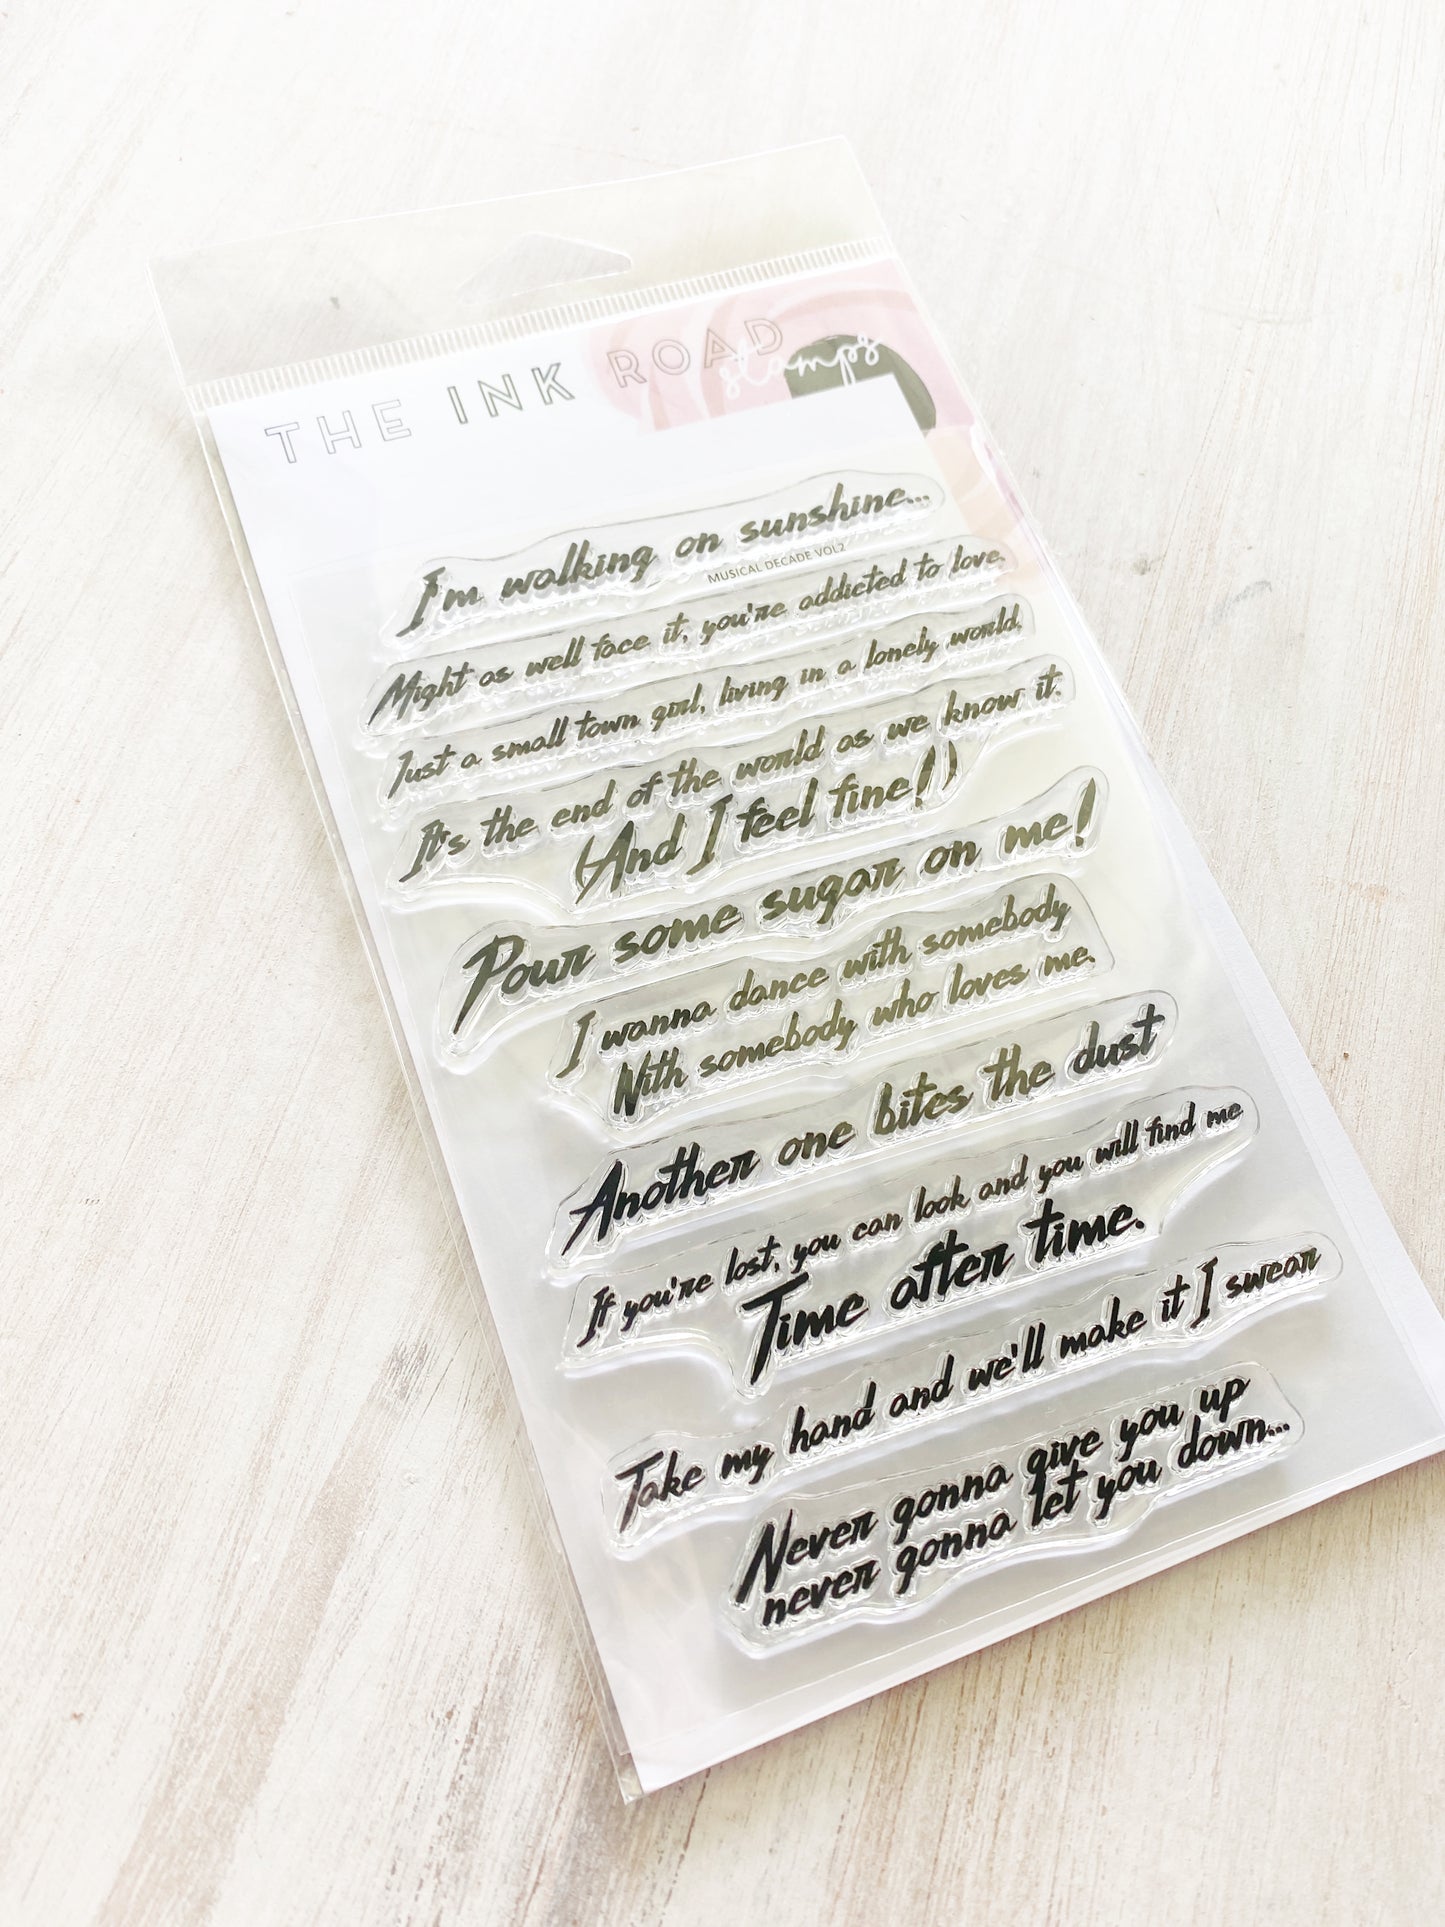 THE INK ROAD
stamps
I'm walking on sunshine...
MUSICAL DECADE VOL2
Might as well face it, you're addicted to love.
Just a small town girl, living in a lonely world.
It's the end of the world as we know it.
(And I feel fine!)
Pour some sugar on me!
I wanna dance with somebody
With somebody who loves me.
Another one bites the dust
If you're lost, you can look and you will find me
Time after time.
Take my hand and we'll make it I swear
Never gonna give you up
never gonna let you down...